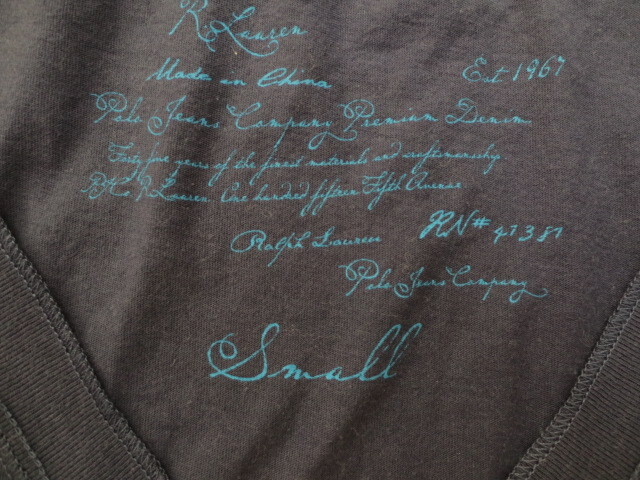 R. Lauren
Made in China
Est 1967
Polo Jeans Company Premium Denim
Forty five years of the finest materials and craftsmanship
R.L. Co. R. Lauren. One hundred fifteen Fifth Avenue
Ralph Lauren RN# 41381
Polo Jeans Company
Small